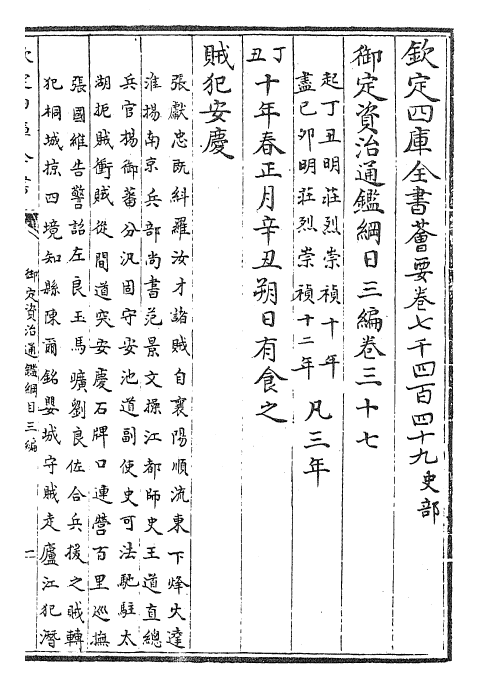 欽定四庫全書薈要卷七千四百四十九史部
御定資治通鑑綱目三編卷三十七
起丁丑明莊烈崇禎十年
盡己卯明莊烈崇禎十二年
凡三年
丁丑
十年春正月辛丑朔日有食之
賊犯安慶
張獻忠既糾羅汝才諸賊自襄陽順流東下烽火達
淮揚南京兵部尚書范景文操江都師史王道直總
兵官楊御蕃分汛固守安池道副使史可法馳駐太
湖扼賊衝賊從間道突安慶石牌口連營百里巡撫
張國維告警詔左良玉馬爌劉良佐合兵援之賊轉
犯桐城掠四境知縣陳爾銘嬰城守賊走廬江犯潛
御定資治通鑑綱目三編
一